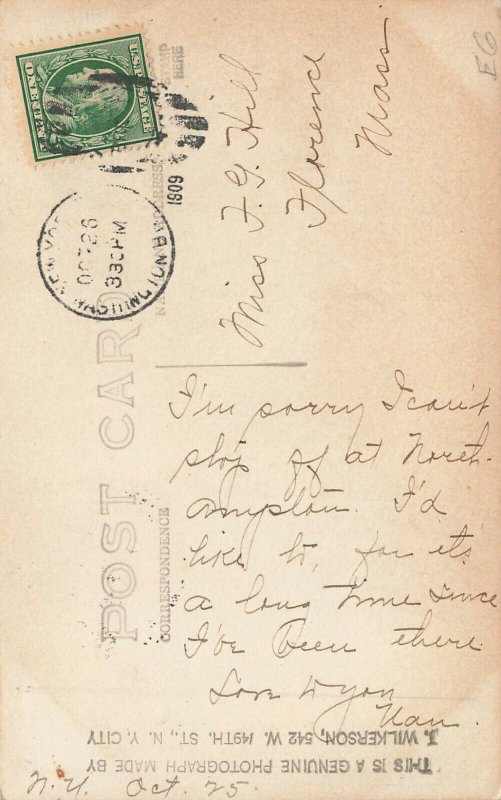 U.S. POSTAGE
ONE
STAMP
HERE
NEW YO
OCT 26
330PM
WASHINGTON B
1909
POST CARD
CORRESPONDENCE
Miss F. G. Hill
Florence
Mass.
E6
I'm sorry I can't
stop off at North-
ampton. I'd
like to, for it's
a long time since
I've been there
Love to you
Nan.
THIS IS A GENUINE PHOTOGRAPH MADE BY
J. WILKERSON, 542 W. 149TH. ST., N. Y. CITY
N.Y. Oct. 25.